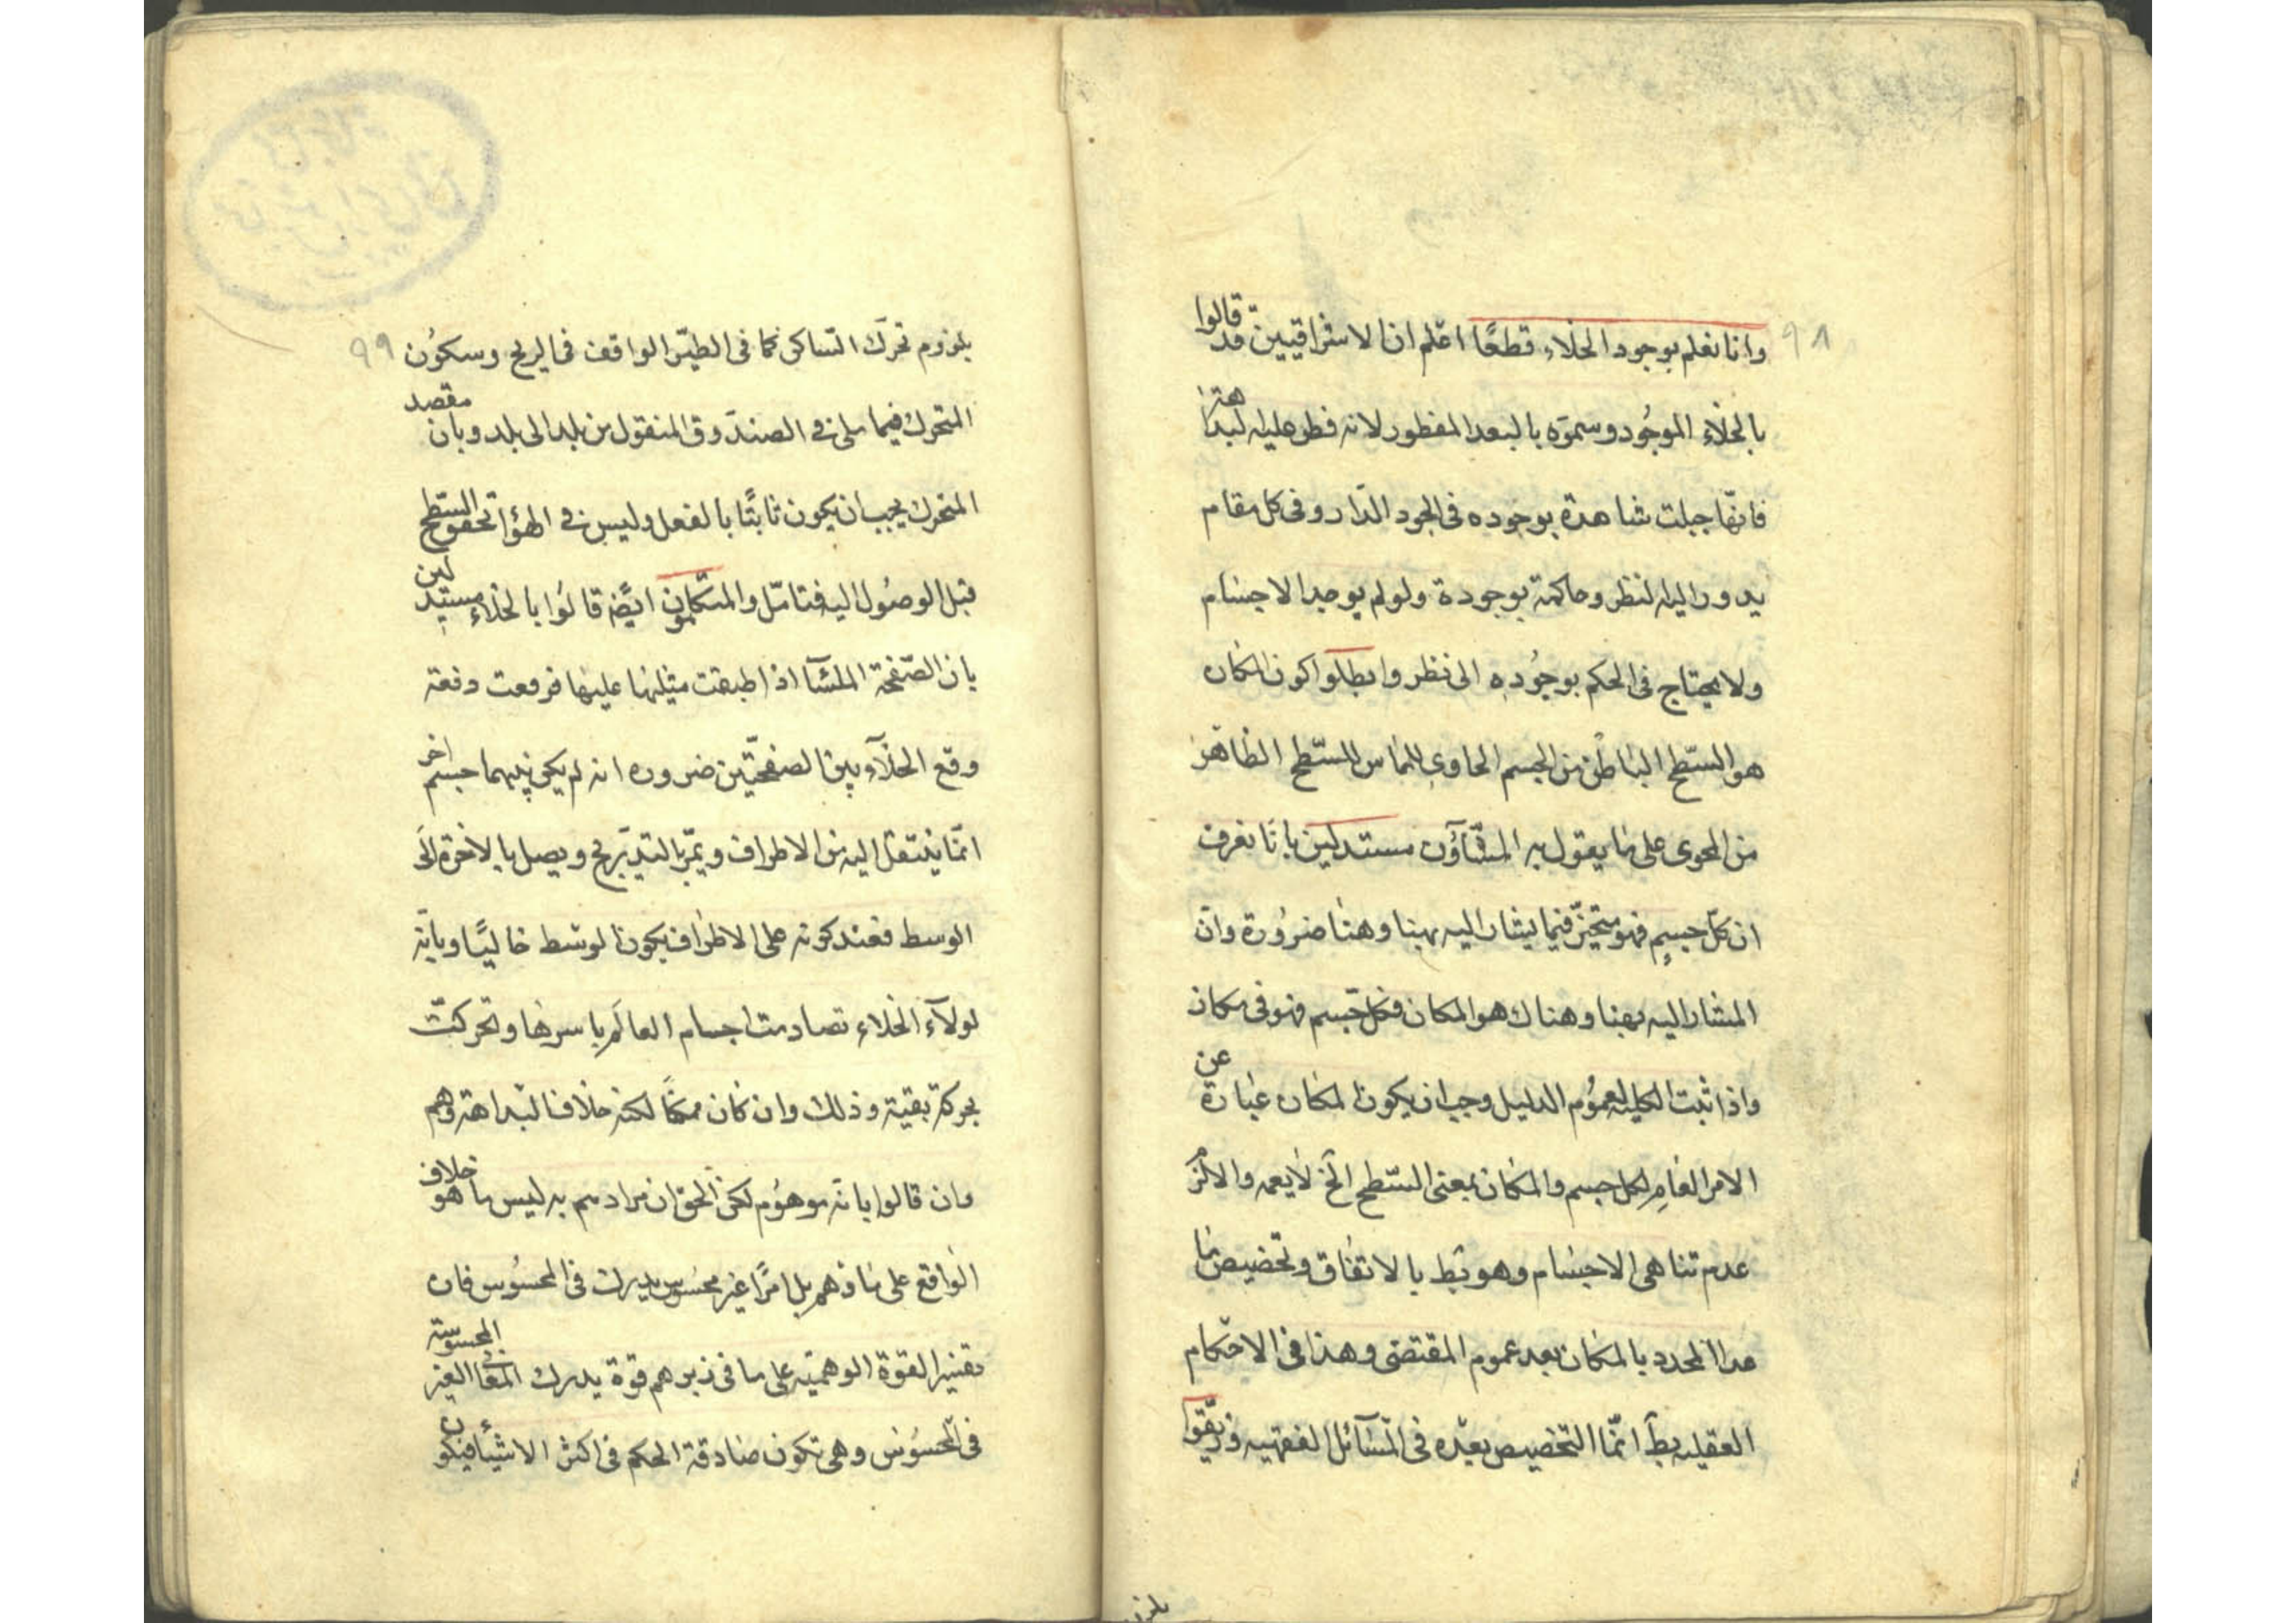 ٩٨
وانا نعلم بوجود الخلاء قطعًا اعلم ان الاشراقيين قد قالوا
بالخلاء الموجود وسموه بالبعد المفطور لانه فطر عليه البداهة
فانها جبلت شاهدة بوجوده فى الجود الدار وفى كل مقام
يدور اليه النظر وحاكمة بوجوده ولو لم يوجد الاجسام
ولا يحتاج فى الحكم بوجوده الى نظر وابطلوا كون المكان
هو السطح الباطن من الجسم الحاوى المماس للسطح الظاهر
من المحوى على ما يقول به المشاؤن مستدلين بانا نعرف
ان كل جسم فهو متحيز فيما يشار اليه بهنا وهنا ضرورة وان
المشار اليه بهنا وهناك هو المكان فكل جسم فهو فى مكان
واذا ثبت الكليه لعموم الدليل وجب ان يكون المكان عبارة عن
الامر العام لكل جسم والمكان بمعنى السطح الخ لا يعمه والا لزم
عدم تناهى الاجسام وهو بط بالاتفاق وتخصيص ما
عدا المحدد بالمكان بعد عموم المقتضى وهذا فى الاحكام
العقليه بط انما التخصيص بعده فى المسائل الفقهيه وزيفوا
بلزوم
٩٩
بلزوم تحرك الساكن كما فى الطير الواقف فى الريح وسكون
المتحرك فيما على فى الصندوق المنقول من بلد الى بلد وبان مقصد
المتحرك يجب ان يكون ثابتًا بالفعل وليس فى الهواء تحقق السطح
قبل الوصول اليه فتامل والمتكلمون ايضه قالوا بالخلاء مستدلين
بان الصفحة الملساء اذا طبقت مثلها عليها فرفعت دفعة
وقع الخلآء بين الصفحتين ضروره انه لم يكن بينهما جسم اخر
انما ينتقل اليه من الاطراف ويمر بالتدريج ويصل بالاخرة الى
الوسط فعند كونه على الاطراف يكون الوسط خاليًا وبانه
لولآء الخلاء تصادمت اجسام العالم باسرها وتحركت
بحركة بقية وذلك وان كان ممكنًا لكنه خلاف البداهة وهم
وان قالوا بانه موهوم لكن الحق ان مرادهم به ليس ما هو خلاف
الواقع على ما ذهم بل امرًا غير محسوس يدرك فى المحسوس فان
القوة الوهميه على ما فى زبرهم قوة يدرك المعانى الغير المحسوسة
فى المحسوس وهى تكون صادقة الحكم فى اكثر الاشياء فيكون